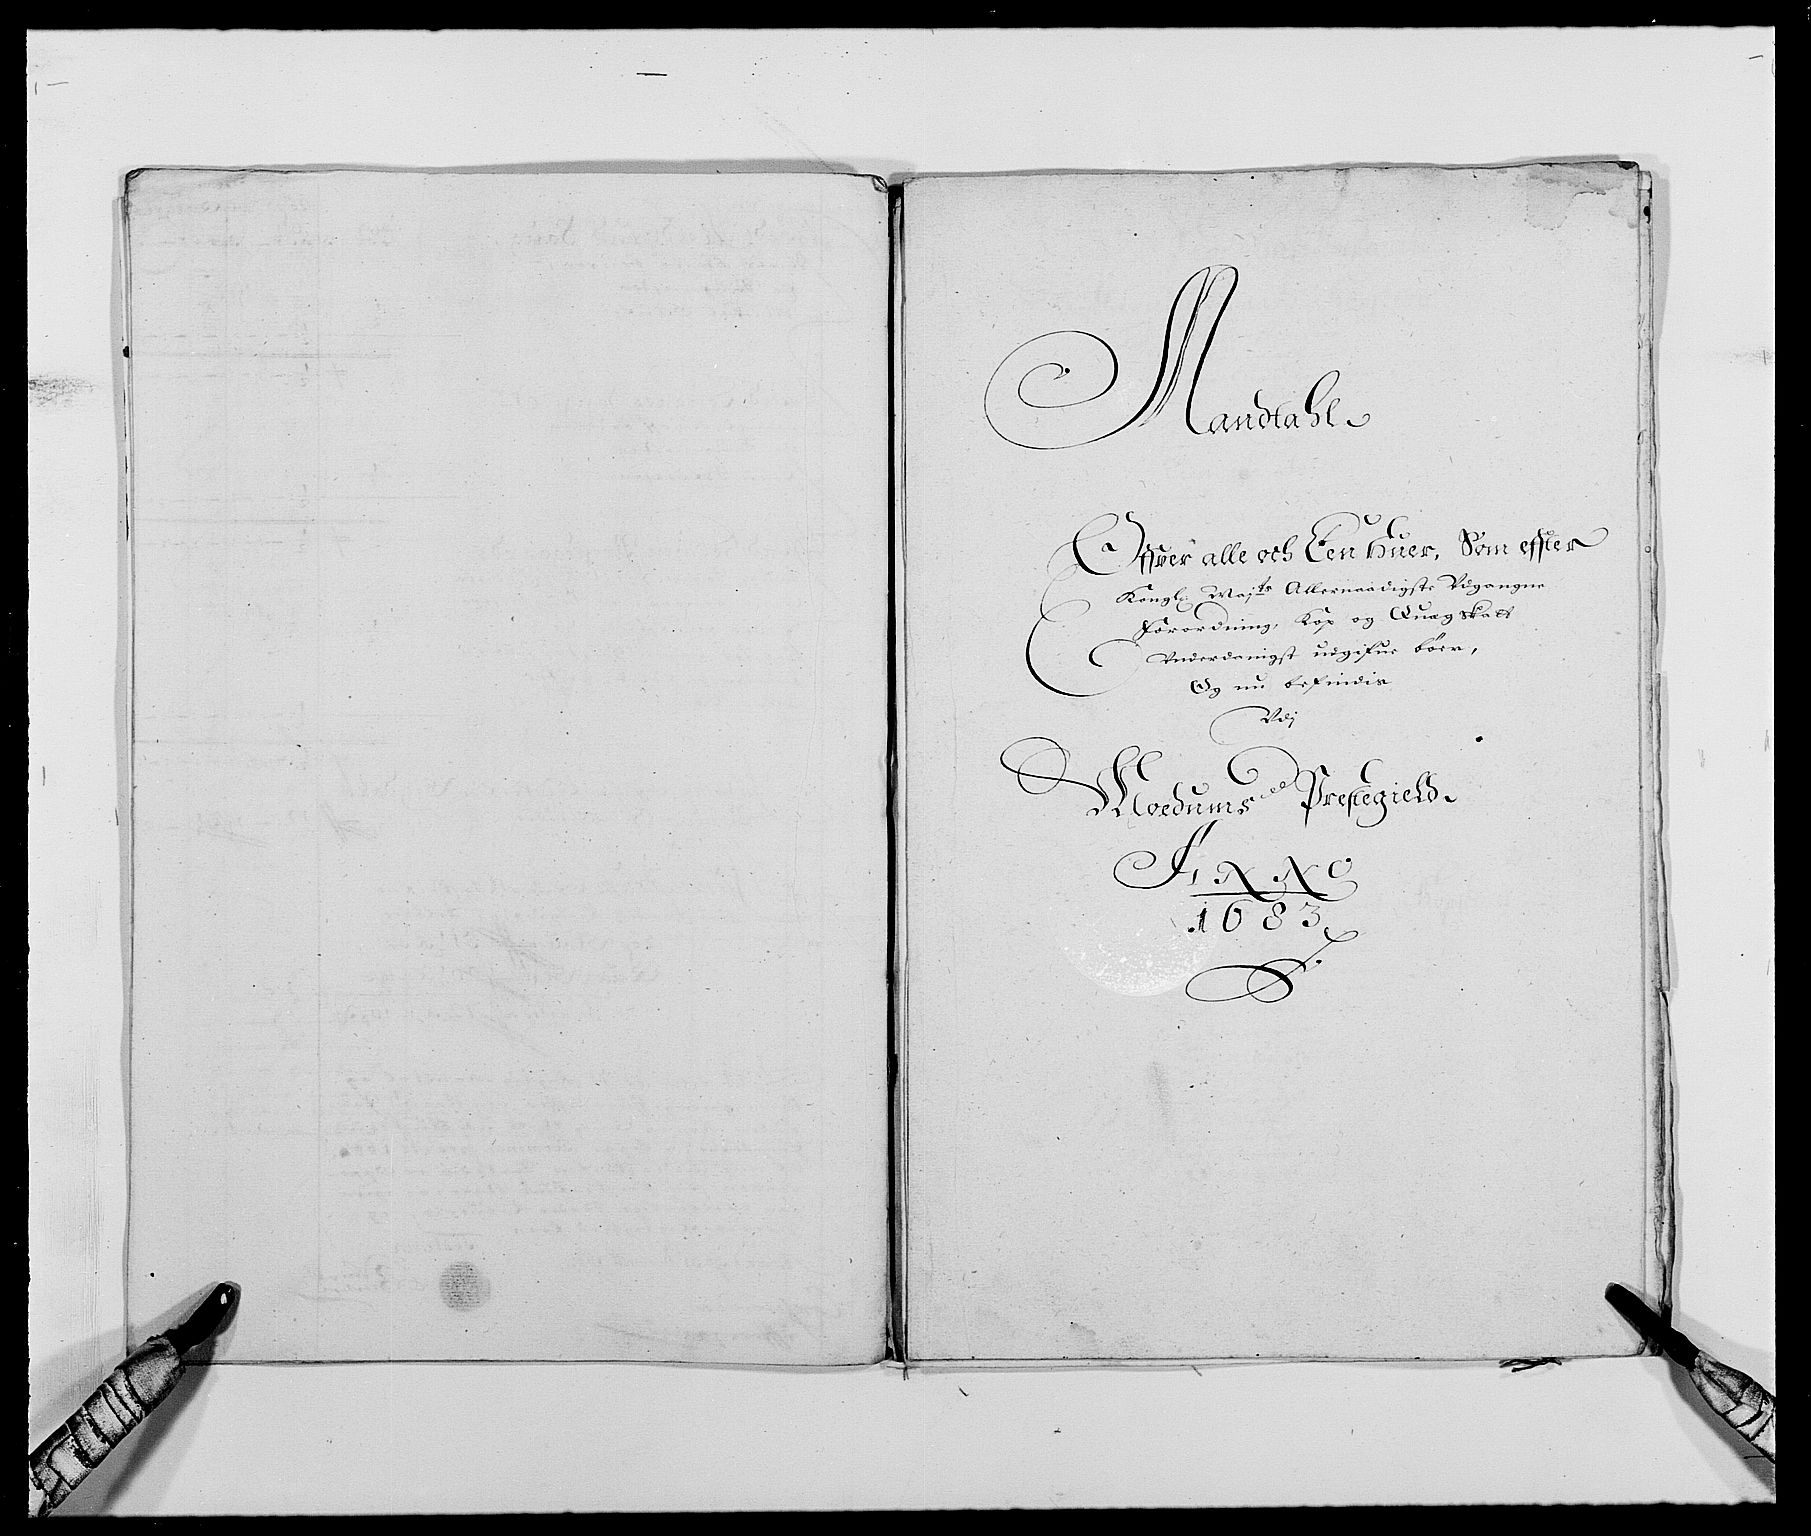 Mandtahl
Offver alle och Een huer, Som effter
Kongl: Maj:ts Allernaadigste Udgangne
Forordning, Kop og Quæg skatt
Underdanigst udgifue bøer,
Og nu befindis
Udj
Moedums Prestegield
ANNO
1683